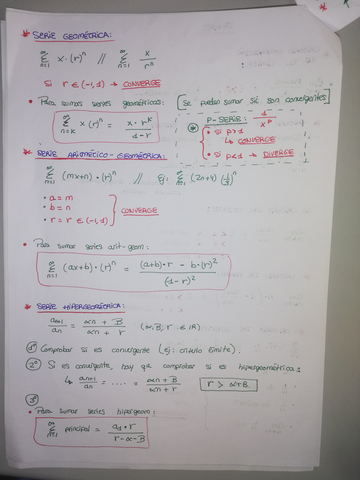 * SERIE GEOMÉTRICA:
∞Σn=1 x·(r)ⁿ // ∞Σn=1 x/rⁿ
Si r ∈ (-1,1) → CONVERGE
• Para sumar series geométricas: [Se pueden sumar si son convergentes]
∞Σn=k x(r)ⁿ = x·rᵏ/1-r
* P-SERIE: 1/xᵖ
• Si p>1
↳ CONVERGE
• Si p<1 → DIVERGE
* SERIE ARITMÉTICO-GEOMÉTRICA:
∞Σn=1 (mx+n)·(r)ⁿ // Ej: ∞Σn=1 (2n+4)(1/3)ⁿ
• a = m
• b = n
• r = r ∈ (-1,1)
CONVERGE
• Para sumar series arit-geom:
∞Σn=1 (ax+b)·(r)ⁿ = (a+b)·r - b·(r)²/(1-r)²
* SERIE HIPERGEOMÉTRICA:
an+1/an = αn + B/αn + r (α,B,r ∈ ℝ)
1º Comprobar si es convergente (Ej: criterio límite).
2º Si es convergente, hay que comprobar si es hipergeométrica:
↳ an+1/an = .... = αn + B/αn + r r > α+B.
3º
• Para sumar series hipergeom:
∞Σn=1 principal = a1·r/r-α-B